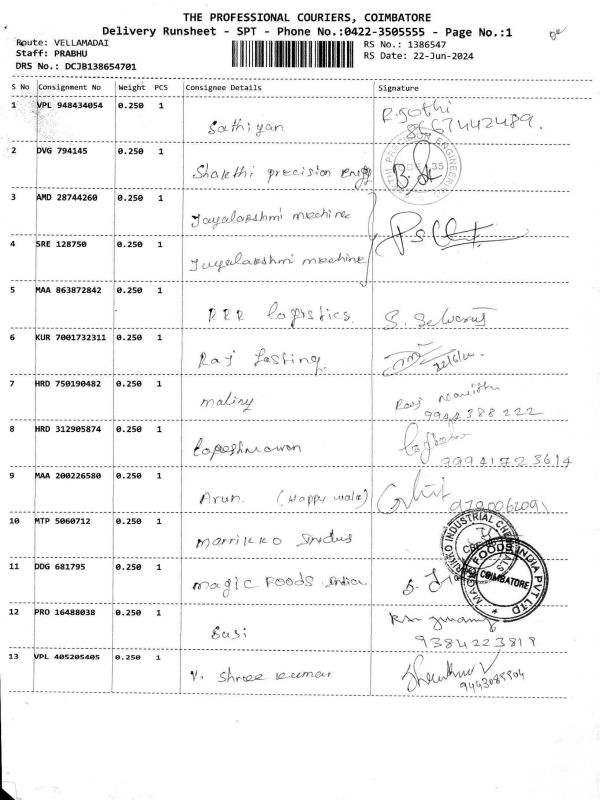 THE PROFESSIONAL COURIERS, COIMBATORE
Delivery Runsheet - SPT - Phone No.:0422-3505555 - Page No.:1
Route: VELLAMADAI RS No.: 1386547
Staff: PRABHU RS Date: 22-Jun-2024
DRS No.: DCJB138654701
S No Consignment No Weight PCS Consignee Details Signature
1 VPL 948434054 0.250 1 Sathiyan R. Jothi 8667442489.
2 DVG 794145 0.250 1 Shakthi precision Engg
3 AMD 28744260 0.250 1 Jayalakshmi machine
4 SRE 128750 0.250 1 Jayalakshmi machine
5 MAA 863872842 0.250 1 RRR logistics S. Selvaraj
6 KUR 7001732311 0.250 1 Raj 22/6/24.
7 HRD 750190482 0.250 1 9944388222
8 HRD 312905874 0.250 1 9994172 3614
9 MAA 200226580 0.250 1 Arun (Happy wala)
10 MTP 5060712 0.250 1 Marrikko Indus
11 DDG 681795 0.250 1 Magic FOODS India
MAGIC FOODS INDIA PVT LTD
COIMBATORE
12 PRO 16488038 0.250 1 Susi 9384223819
13 VPL 405205405 0.250 1 V. Shree kumar